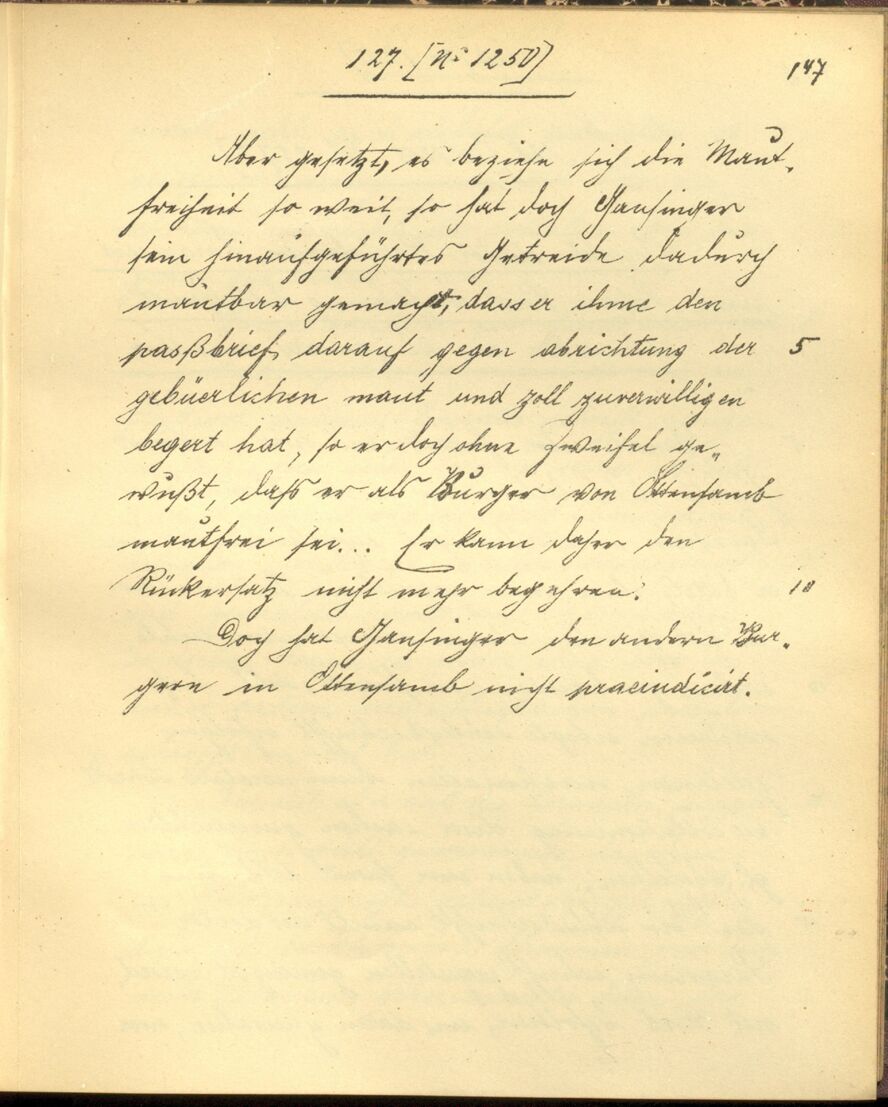 127. [No 1250]
147
Aber gesetzt, es beziehe sich die Maut-
freiheit so weit, so hat doch Gansinger
sein hinaufgeführtes Getreide dadurch
mautbar gemacht, dass er ihme den
passbrief darauf gegen abrichtung der 5
gebüerlichen maut und zoll zuverwilligen
begert hat, so er doch ohne Zweifel ge-
wußt, daß er als Burger von Ottensamb
mautfrei sei... Er kann daher den
Rückersatz nicht mehr begehren. 10
Doch hat Gansinger den andern Bur-
gern in Ottensamb nicht praeiudicirt.